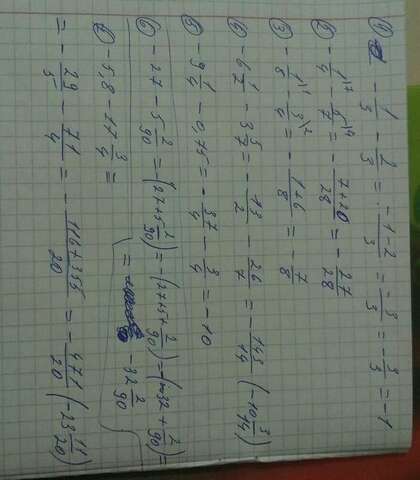 а) - 1/3 - 2/3 = (-1-2)/3 = -3/3 = -1
б) - 1/4 \7 - 5/7 \4 = - (7+20)/28 = - 27/28
в) - 1/8 \1 - 3/4 \2 = - (1+6)/8 = - 7/8
г) - 6 1/2 - 3 5/7 = - 13/2 - 26/7 = - 143/14 (-10 3/14)
- 9 1/4 - 0,75 = - 37/4 - 3/4 = -10
- 27 - 5 2/90 = -(27+5 2/90) = -(27+5+ 2/90) = -(32+ 2/90) =
= -32 2/90
- 5,8 - 17 3/4 =
= - 29/5 - 71/4 = - (116+355)/20 = - 471/20 (-23 11/20)